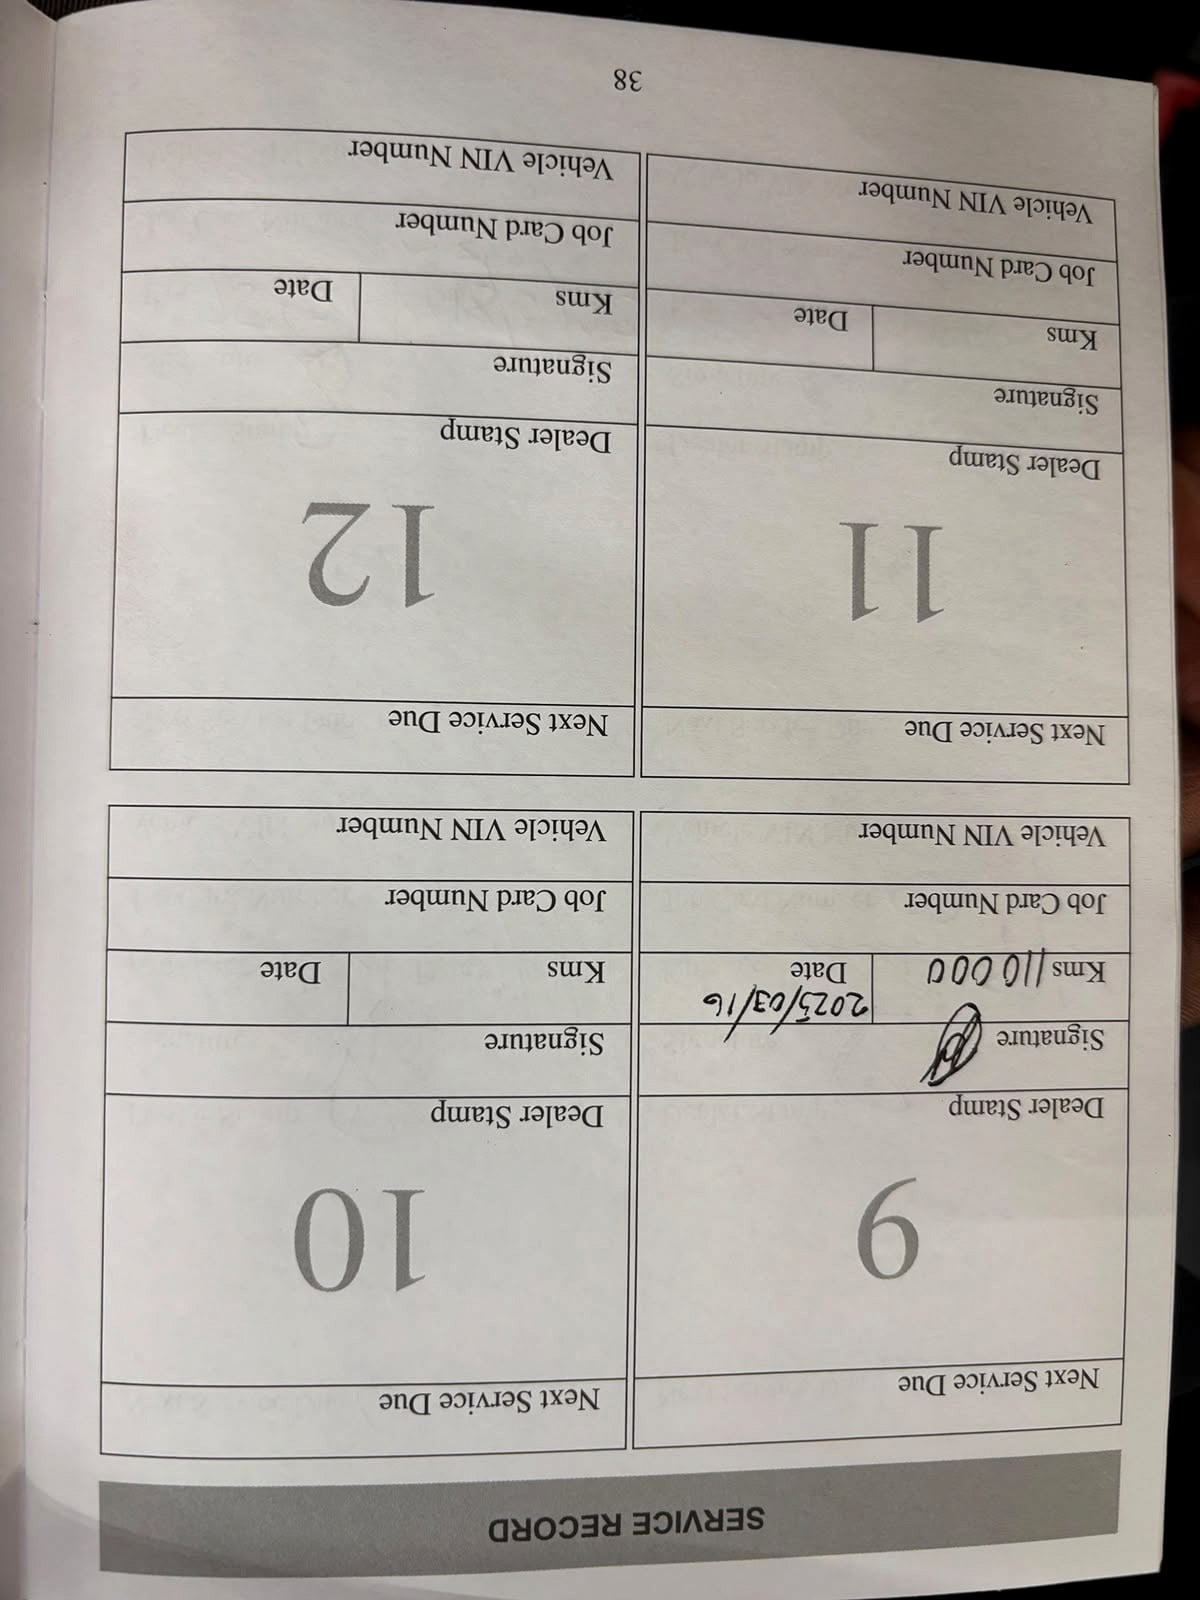 SERVICE RECORD
Next Service Due
9
Dealer Stamp
Signature
Kms 110 000
Date 2025/03/16
Job Card Number
Vehicle VIN Number
Next Service Due
10
Dealer Stamp
Signature
Kms
Date
Job Card Number
Vehicle VIN Number
Next Service Due
11
Dealer Stamp
Signature
Kms
Date
Job Card Number
Vehicle VIN Number
Next Service Due
12
Dealer Stamp
Signature
Kms
Date
Job Card Number
Vehicle VIN Number
38